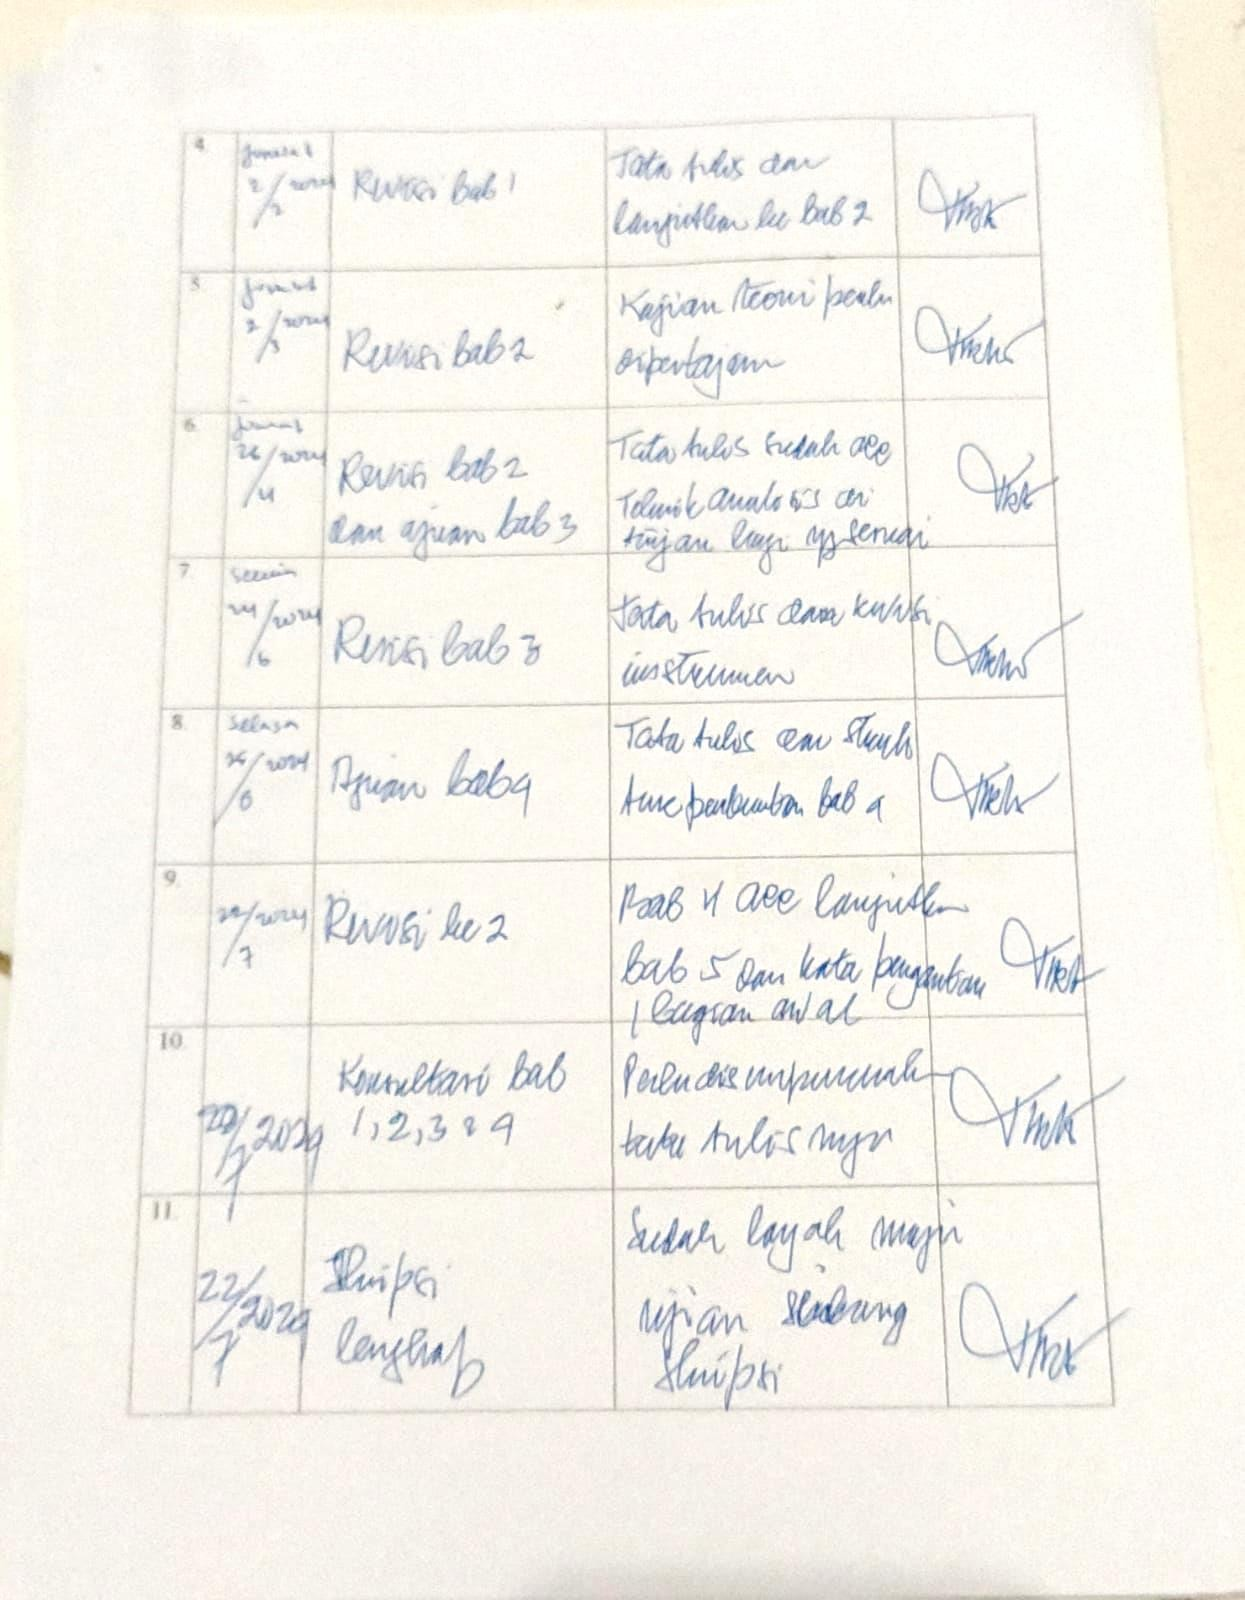 4.
Jumat
2/2024
/2
Revisi bab 1
Tata tulis dan
lanjutkan ke bab 2
5
Jumat
2/2024
/3
Revisi bab 2
Kajian teori perlu
dipertajam
6.
Jumat
26/2024
/4
Revisi bab 2
dan ajuan bab 3
Tata tulis sudah acc
Teknik analisis di
tinjau lagi yg sesuai
7.
Senin
24/2024
/6
Revisi bab 3
Tata tulis dan
instrumen
8.
Selasa
/2024
/6
Ajuan bab 4
Tata tulis dan
bab 4
9.
/2024
/7
Revisi ke 2
Bab 4 acc lanjutkan
bab 5 dan kata pengantar
/ bagian awal
10.
/2024
7
Konsultasi bab
1, 2, 3 & 4
Perlu disempurnakan
tata tulisnya
11.
22/2024
7
Skripsi
lengkap
Sudah layak maju
ujian sidang
skripsi